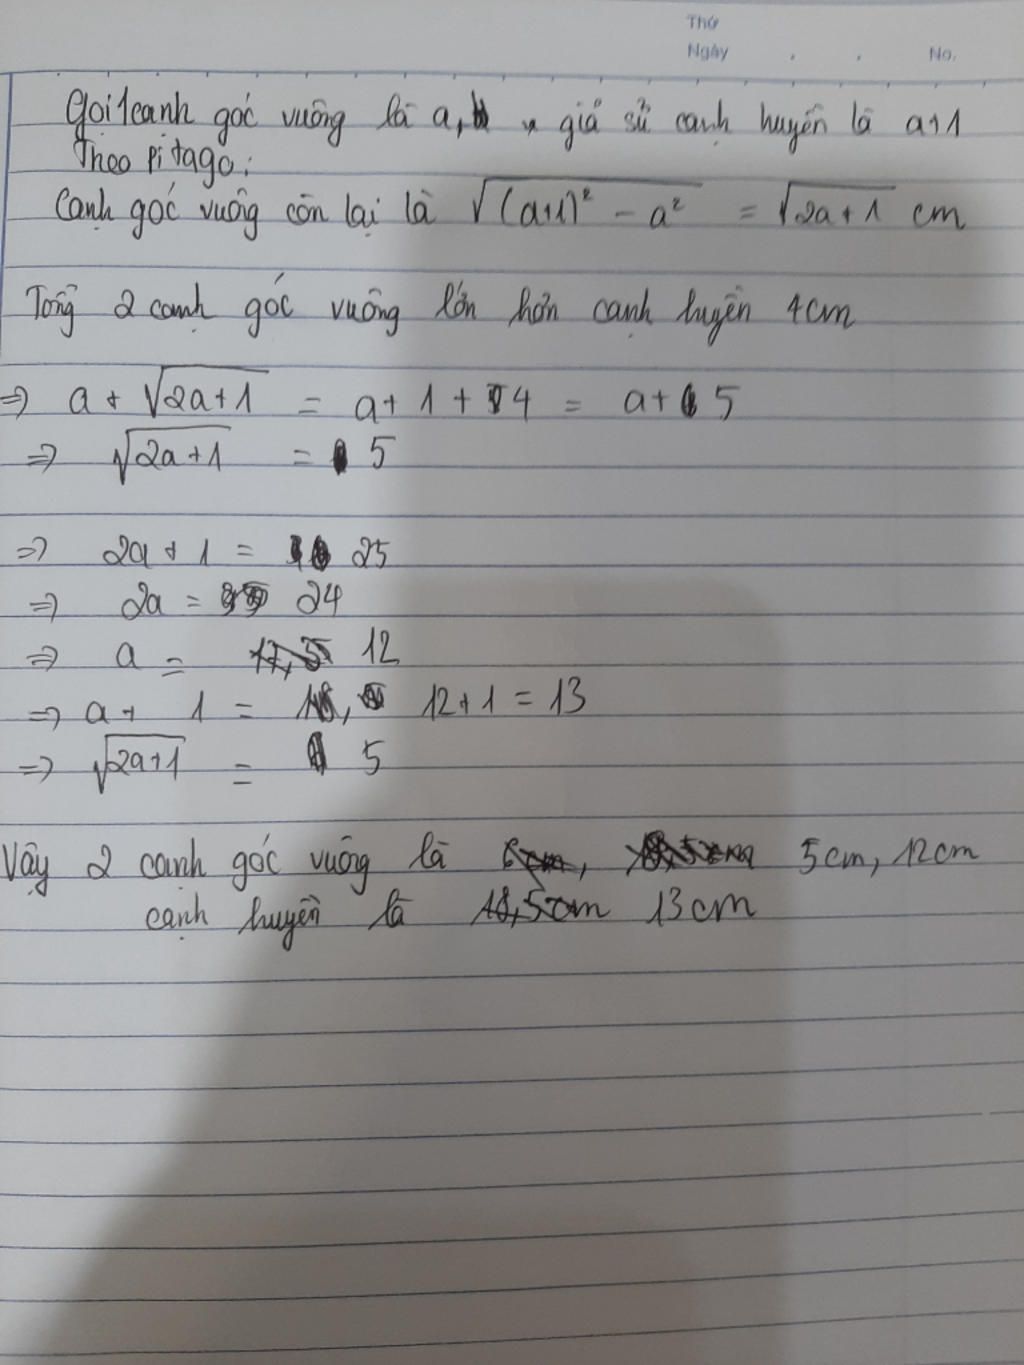 Thứ
Ngày . . No.
Gọi 1 cạnh góc vuông là a, giả sử cạnh huyền là a+1
Theo Pi ta go:
Cạnh góc vuông còn lại là √((a+1)² - a²) = √(2a+1) cm
Tổng 2 cạnh góc vuông lớn hơn cạnh huyền 4cm
⇒ a + √(2a+1) = a + 1 + 4 = a + 5
⇒ √(2a+1) = 5
⇒ 2a + 1 = 25
⇒ 2a = 24
⇒ a = 12
⇒ a + 1 = 12+1 = 13
⇒ √(2a+1) = 5
Vậy 2 cạnh góc vuông là 5cm, 12cm
cạnh huyền là 18,5cm 13cm